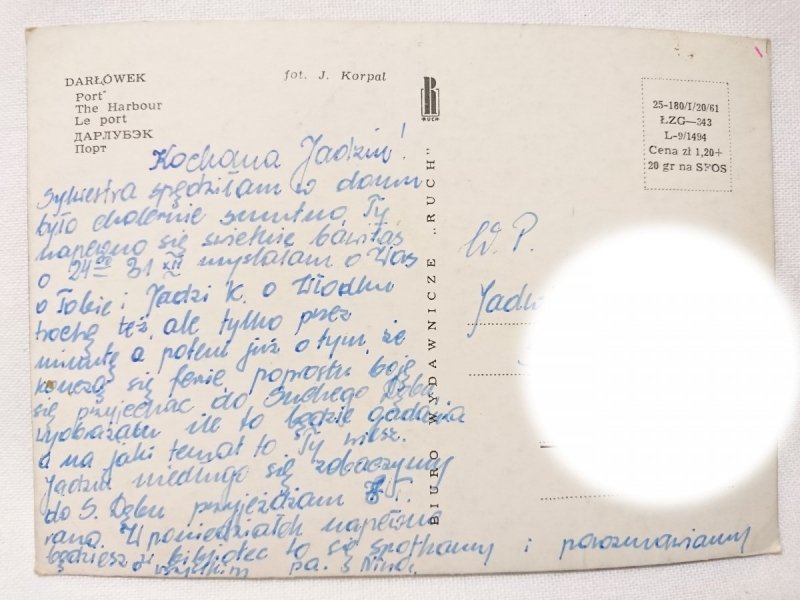 DARŁÓWEK
Port
The Harbour
Le port
ДАРЛУБЭК
Порт
fot. J. Korpal
RUCH
25-180/I/20/61
ŁZG—343
L-9/1494
Cena zł 1,20+
20 gr na SFOS
BIURO WYDAWNICZE „RUCH"
Kochana Jadziu!
Sylwestra spędziłam w domu
było cholernie smutno, Ty
napewno się świetnie bawiłaś
o 24 00 31 XII myślałam o Was
o Tobie i Jadzi K. o Włodku
trochę też, ale tylko przez
minutę a potem już o tym, że
kończą się ferie poprostu boję
się przyjechać do Suchego Dębu
wyobrażam ile to będzie gadania
a na jaki temat to Ty wiesz.
Jadziu niedługo się zobaczymy
do S. Dębu przyjeżdżam 8 I.
rano. W poniedziałek napewno
będziesz w to się spotkamy i porozmawiamy
o wszystkim pa. Nina.
W. P.
Jadw